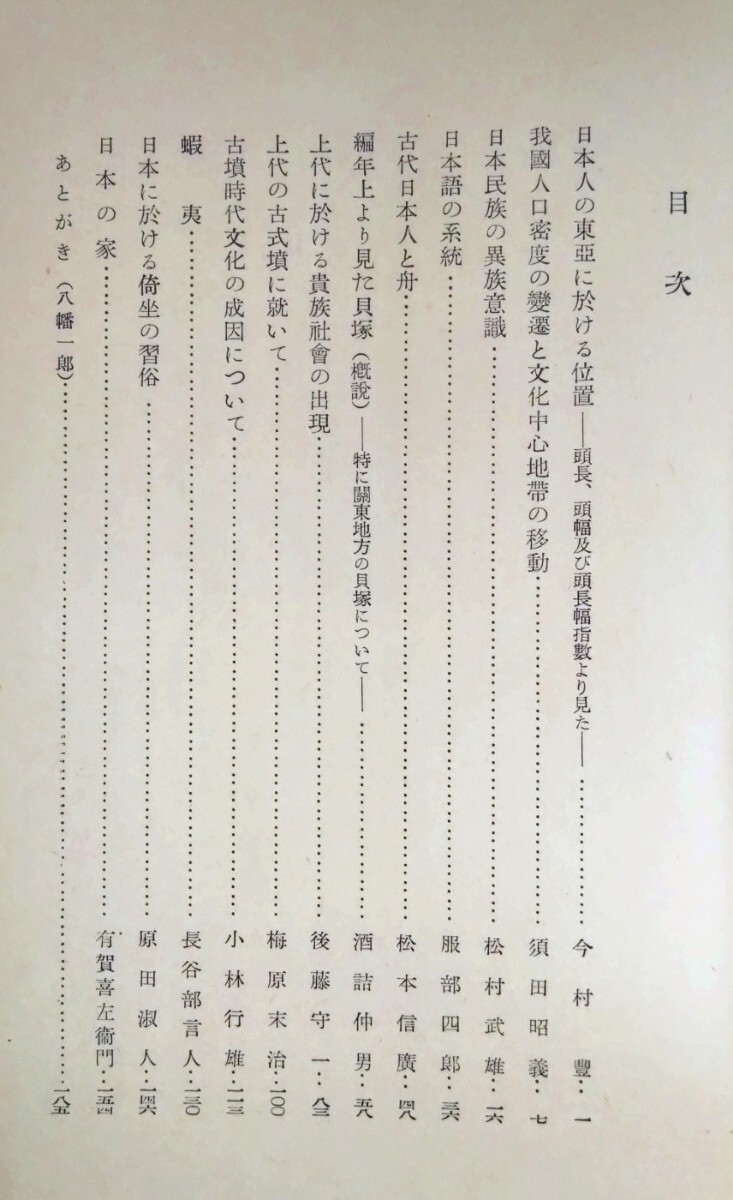 目次
日本人の東亞に於ける位置——頭長、頭幅及び頭長幅指數より見た——……………今村豐‥一
我國人口密度の變遷と文化中心地帶の移動……………須田昭義‥七
日本民族の異族意識……………松村武雄‥一六
日本語の系統……………服部四郎‥三六
古代日本人と舟……………松本信廣‥四八
編年上より見た貝塚（概說）——特に關東地方の貝塚について——……………酒詰仲男‥五八
上代に於ける貴族社會の出現……………後藤守一‥八三
上代の古式墳に就いて……………梅原末治‥一〇〇
古墳時代文化の成因について……………小林行雄‥一一三
蝦夷……………長谷部言人‥一三〇
日本に於ける倚坐の習俗……………原田淑人‥一四六
日本の家……………有賀喜左衞門‥一五四
あとがき（八幡一郎）……………一八五